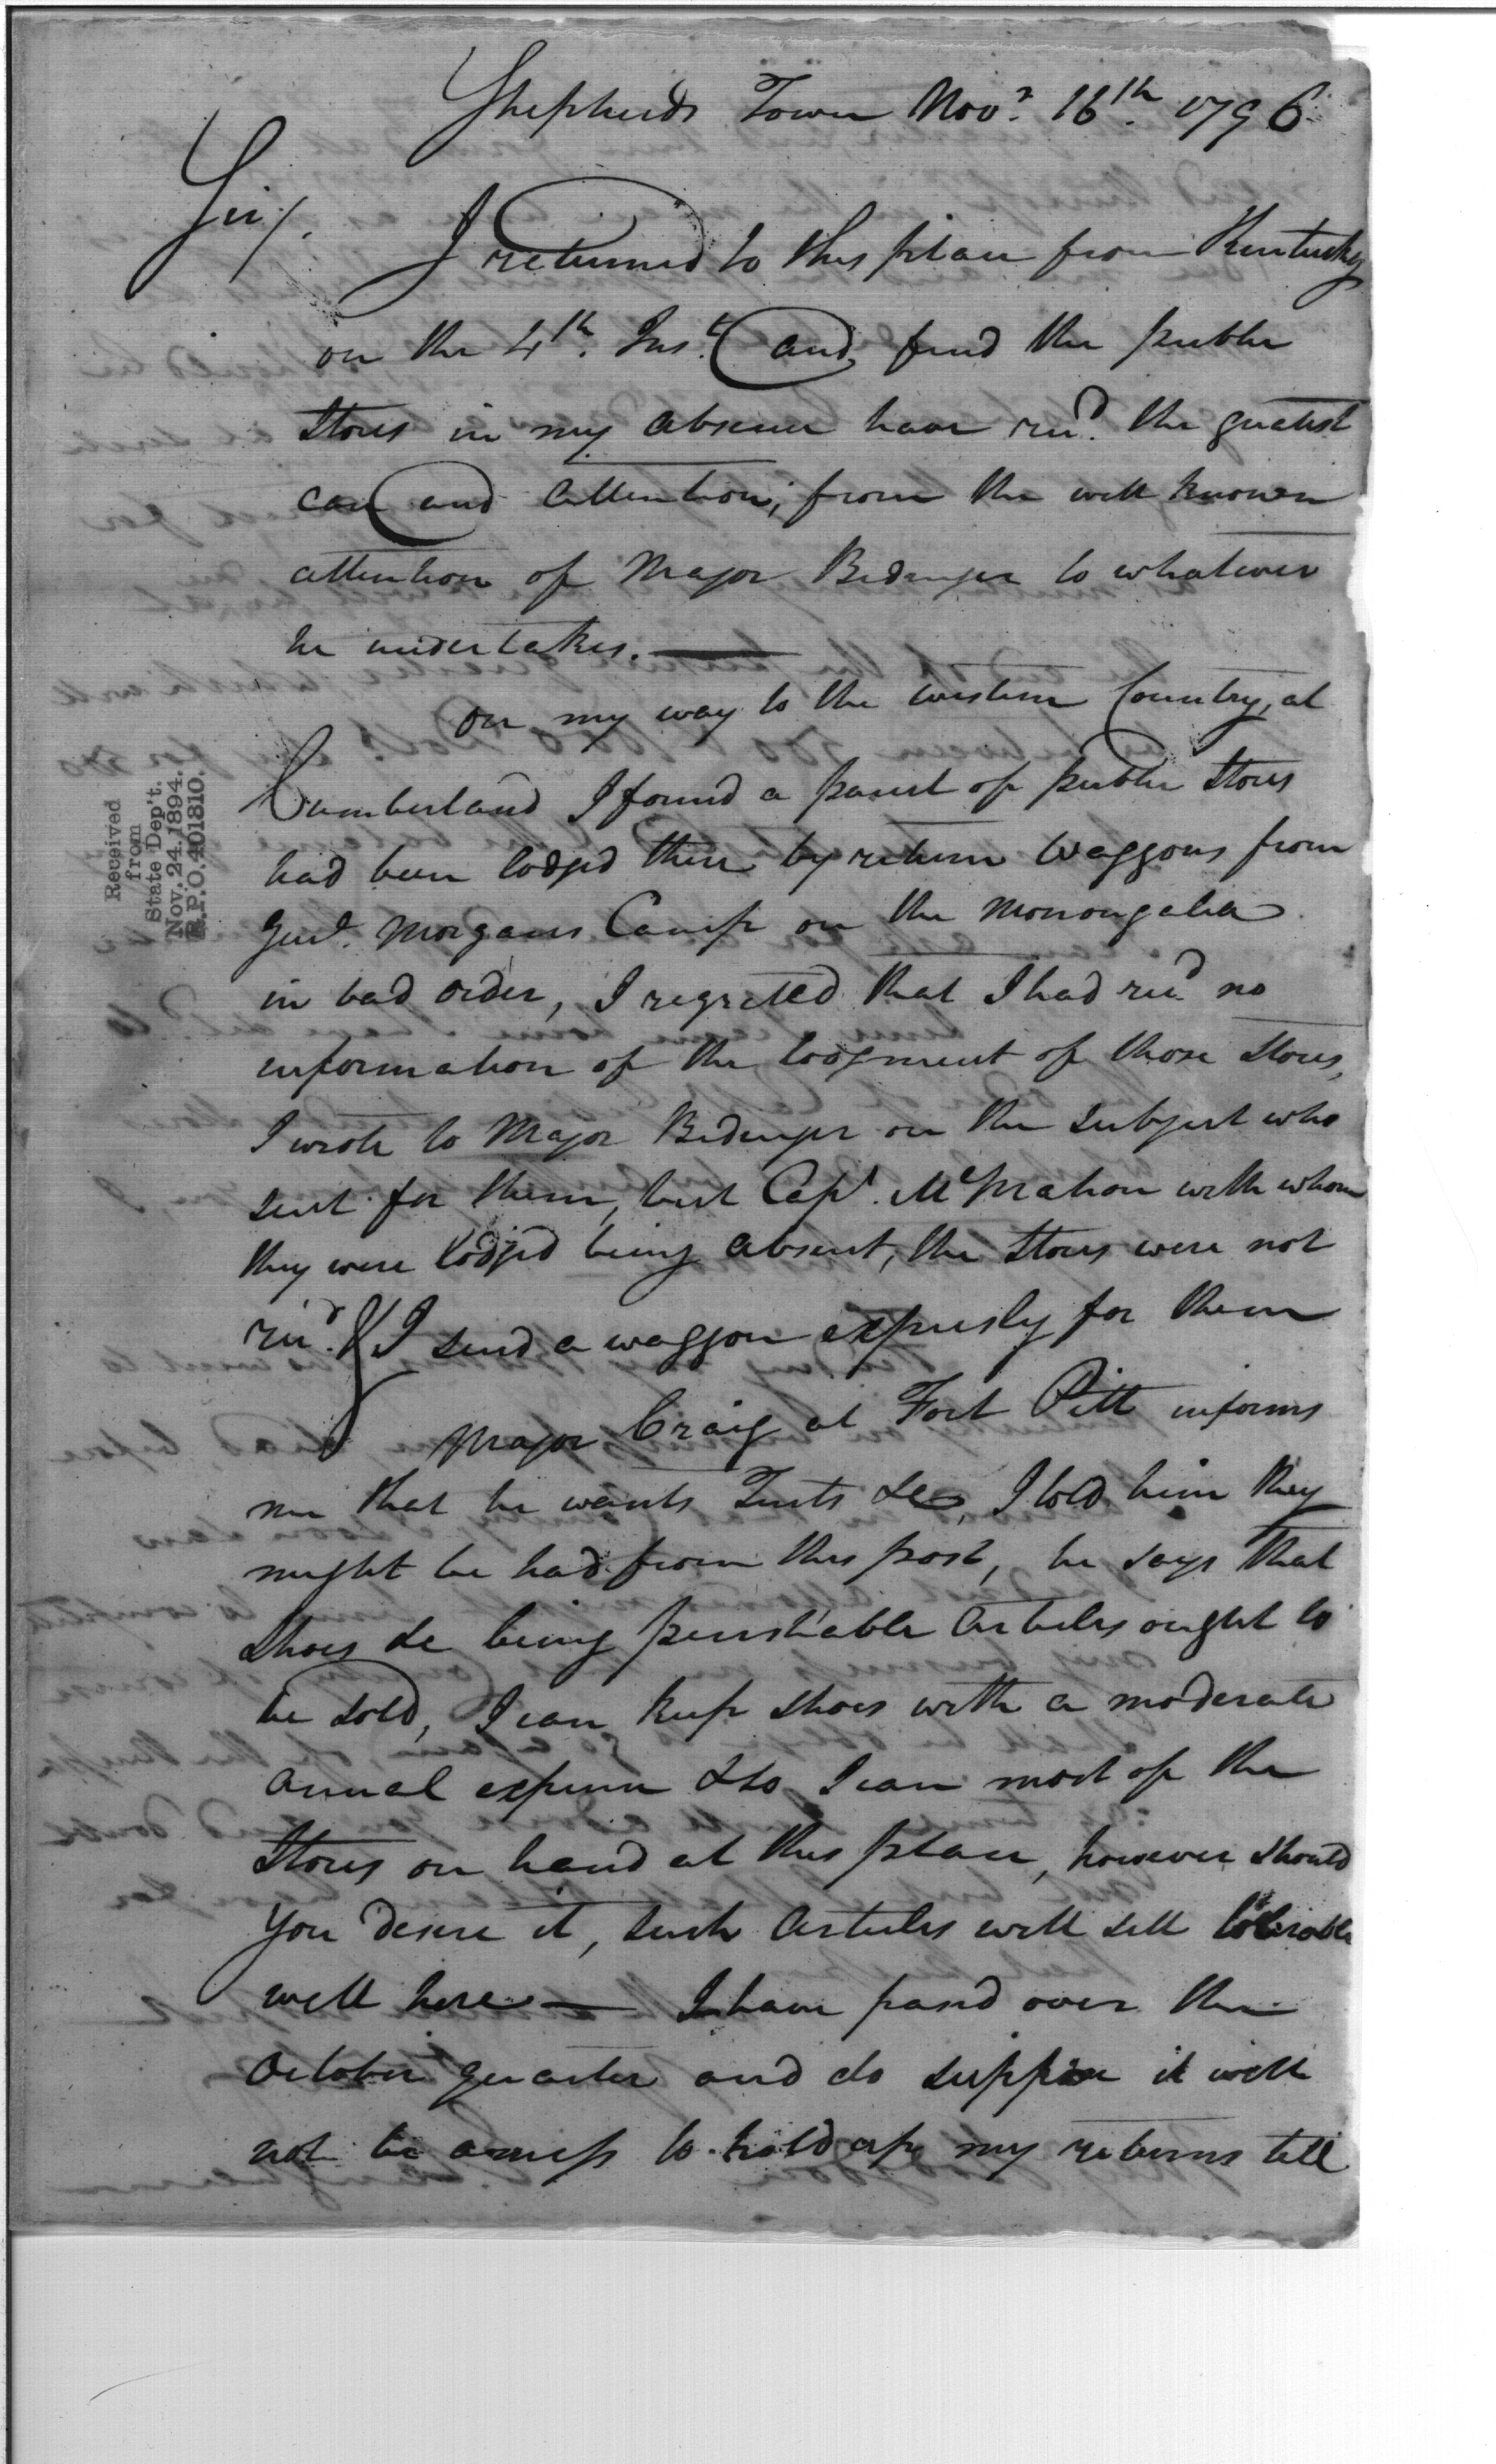 Shepherds Town Novr. 16th. 1796
Sir/.
I returned to this place from Kentucky
on the 4th. Inst. and find the public
Stores in my absence have recd. the greatest
care and attention, from the well known
attention of Major Bedinger to whatever
he undertakes. —
On my way to the western Country, at
Cumberland I found a parcel of public Stores
had been lodged there by return Waggons from
Genl. Morgans Camp on the Monongalia
in bad order, I regretted that I had recd no
information of the lodgment of those Stores,
I wrote to Major Bedinger on the subject who
sent for them, but Capt. McMahon with whom
they were lodged being absent, the Stores were not
recd. & I send a waggon expressly for them
Major Craig at Fort Pitt informs
me that he wants Tents &c, I told him they
might be had from this post, he says that
Shoes &c being perishable Articles ought to
be sold, I can keep shoes with a moderate
annual expence & so I can most of the
Stores on hand at this place, however should
you desire it, such Articles will sell tolerable
well here — I have passd over the
October quarter and do suppose it will
not be amiss to hold up my returns till
Received
from
State Dep't.
Nov. 24, 1894.
R.P.O. 401810.